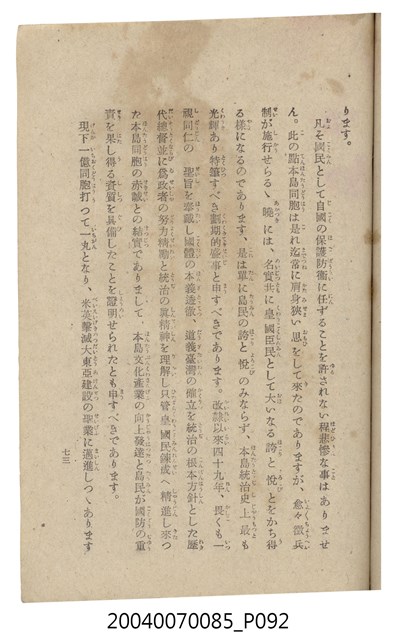 ります。
凡そ國民として自國の保護防衞に任ずることを許されない程悲慘な事はありませ
ん。此の點本島同胞は是れ迄常に肩身狹い思をして來たのでありますが、愈々徵兵
制が施行せらるゝ曉には、名實共に皇國臣民として大いなる誇と悅とをかち得
る樣になるのであります、是は單に島民の誇と悅のみならず、本島統治史上最も
光輝あり特筆すべき劃期的盛事と申すべきであります。改隷以來四十九年、畏くも一
視同仁の 聖旨を奉戴し國體の本義透徹、道義臺灣の確立を統治の根本方針とした歷
代總督並に爲政者の努力精勵と統治の眞精神を理解し只管皇國民鍊成へ精進し來つ
た本島同胞の赤誠との結實でありまして 本島文化產業の向上發達と島民が國防の重
責を果し得る資質を具備したことを證明せられたとも申すべきであります。
現下一億同胞打つて一丸となり、米英擊滅大東亞建設の聖業に邁進しつゝあります
七三
20040070085_P092